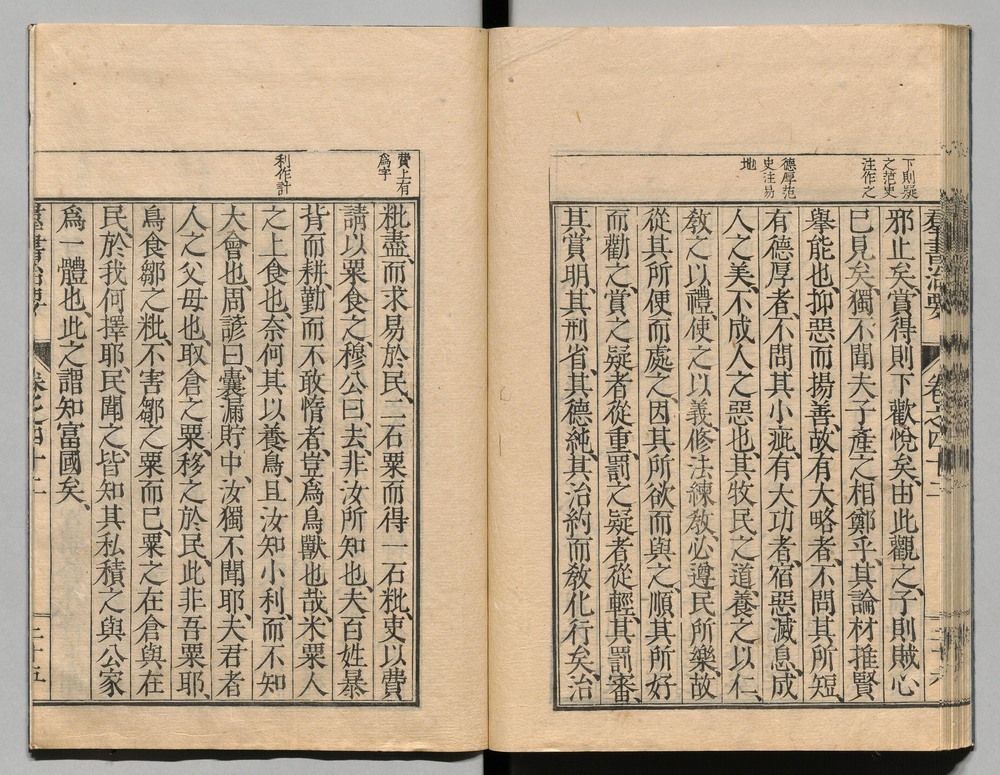 下則疑
之范史
注作之
德厚范
史注易
地
羣書治要 卷之四十二
邪止矣、賞得則下歡悅矣、由此觀之、子則賊心
已見矣、獨不聞夫子產之相鄭乎、其論材推賢
舉能也、抑惡而揚善、故有大略者、不問其所短、
有德厚者、不問其小疵、有大功者、宿惡滅息、成
人之美、不成人之惡也、其牧民之道、養之以仁、
敎之以禮、使之以義、修法練敎、必遵民所樂、故
從其所便而處之、因其所欲而與之、順其所好
而勸之、賞之疑者從重、罰之疑者從輕、其罰審、
其賞明、其刑省、其德純、其治約而敎化行矣、治
費上有
爲字
利作計
粃盡、而求易於民、二石粟而得一石粃、吏以費
請以粟食之、穆公曰、去、非汝所知也、夫百姓暴
背而耕、勤而不敢惰者、豈爲鳥獸也哉、米粟人
之上食也、奈何其以養鳥、且汝知小利、而不知
大會也、周諺曰、囊漏貯中、汝獨不聞耶、夫君者
人之父母也、取倉之粟移之於民、此非吾粟耶、
鳥食鄒之粃、不害鄒之粟而已、粟之在倉與在
民、於我何擇耶、民聞之、皆知其私積之與公家
爲一體也、此之謂知富國矣、
羣書治要 卷之四十二 二十五